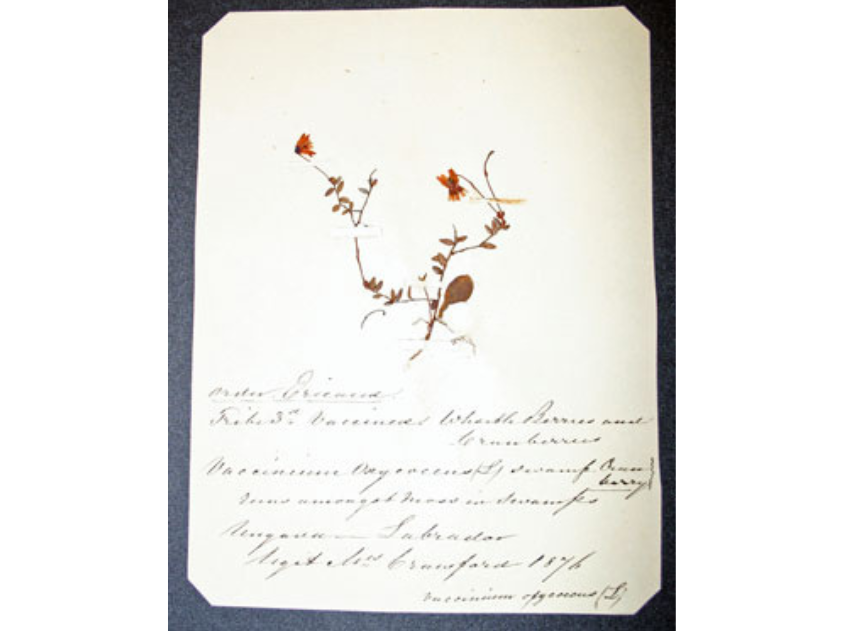 order Ericaceæ.
Tribe 3rd Vacciniæ Whortle Berries and
Cranberries
Vaccinium Oxycoccus (L) swamp Cran
berry
runs amongst moss in swamps
Ungava — Labrador
legit Mrs Crawford 1876
vaccinium oxycocus (L)